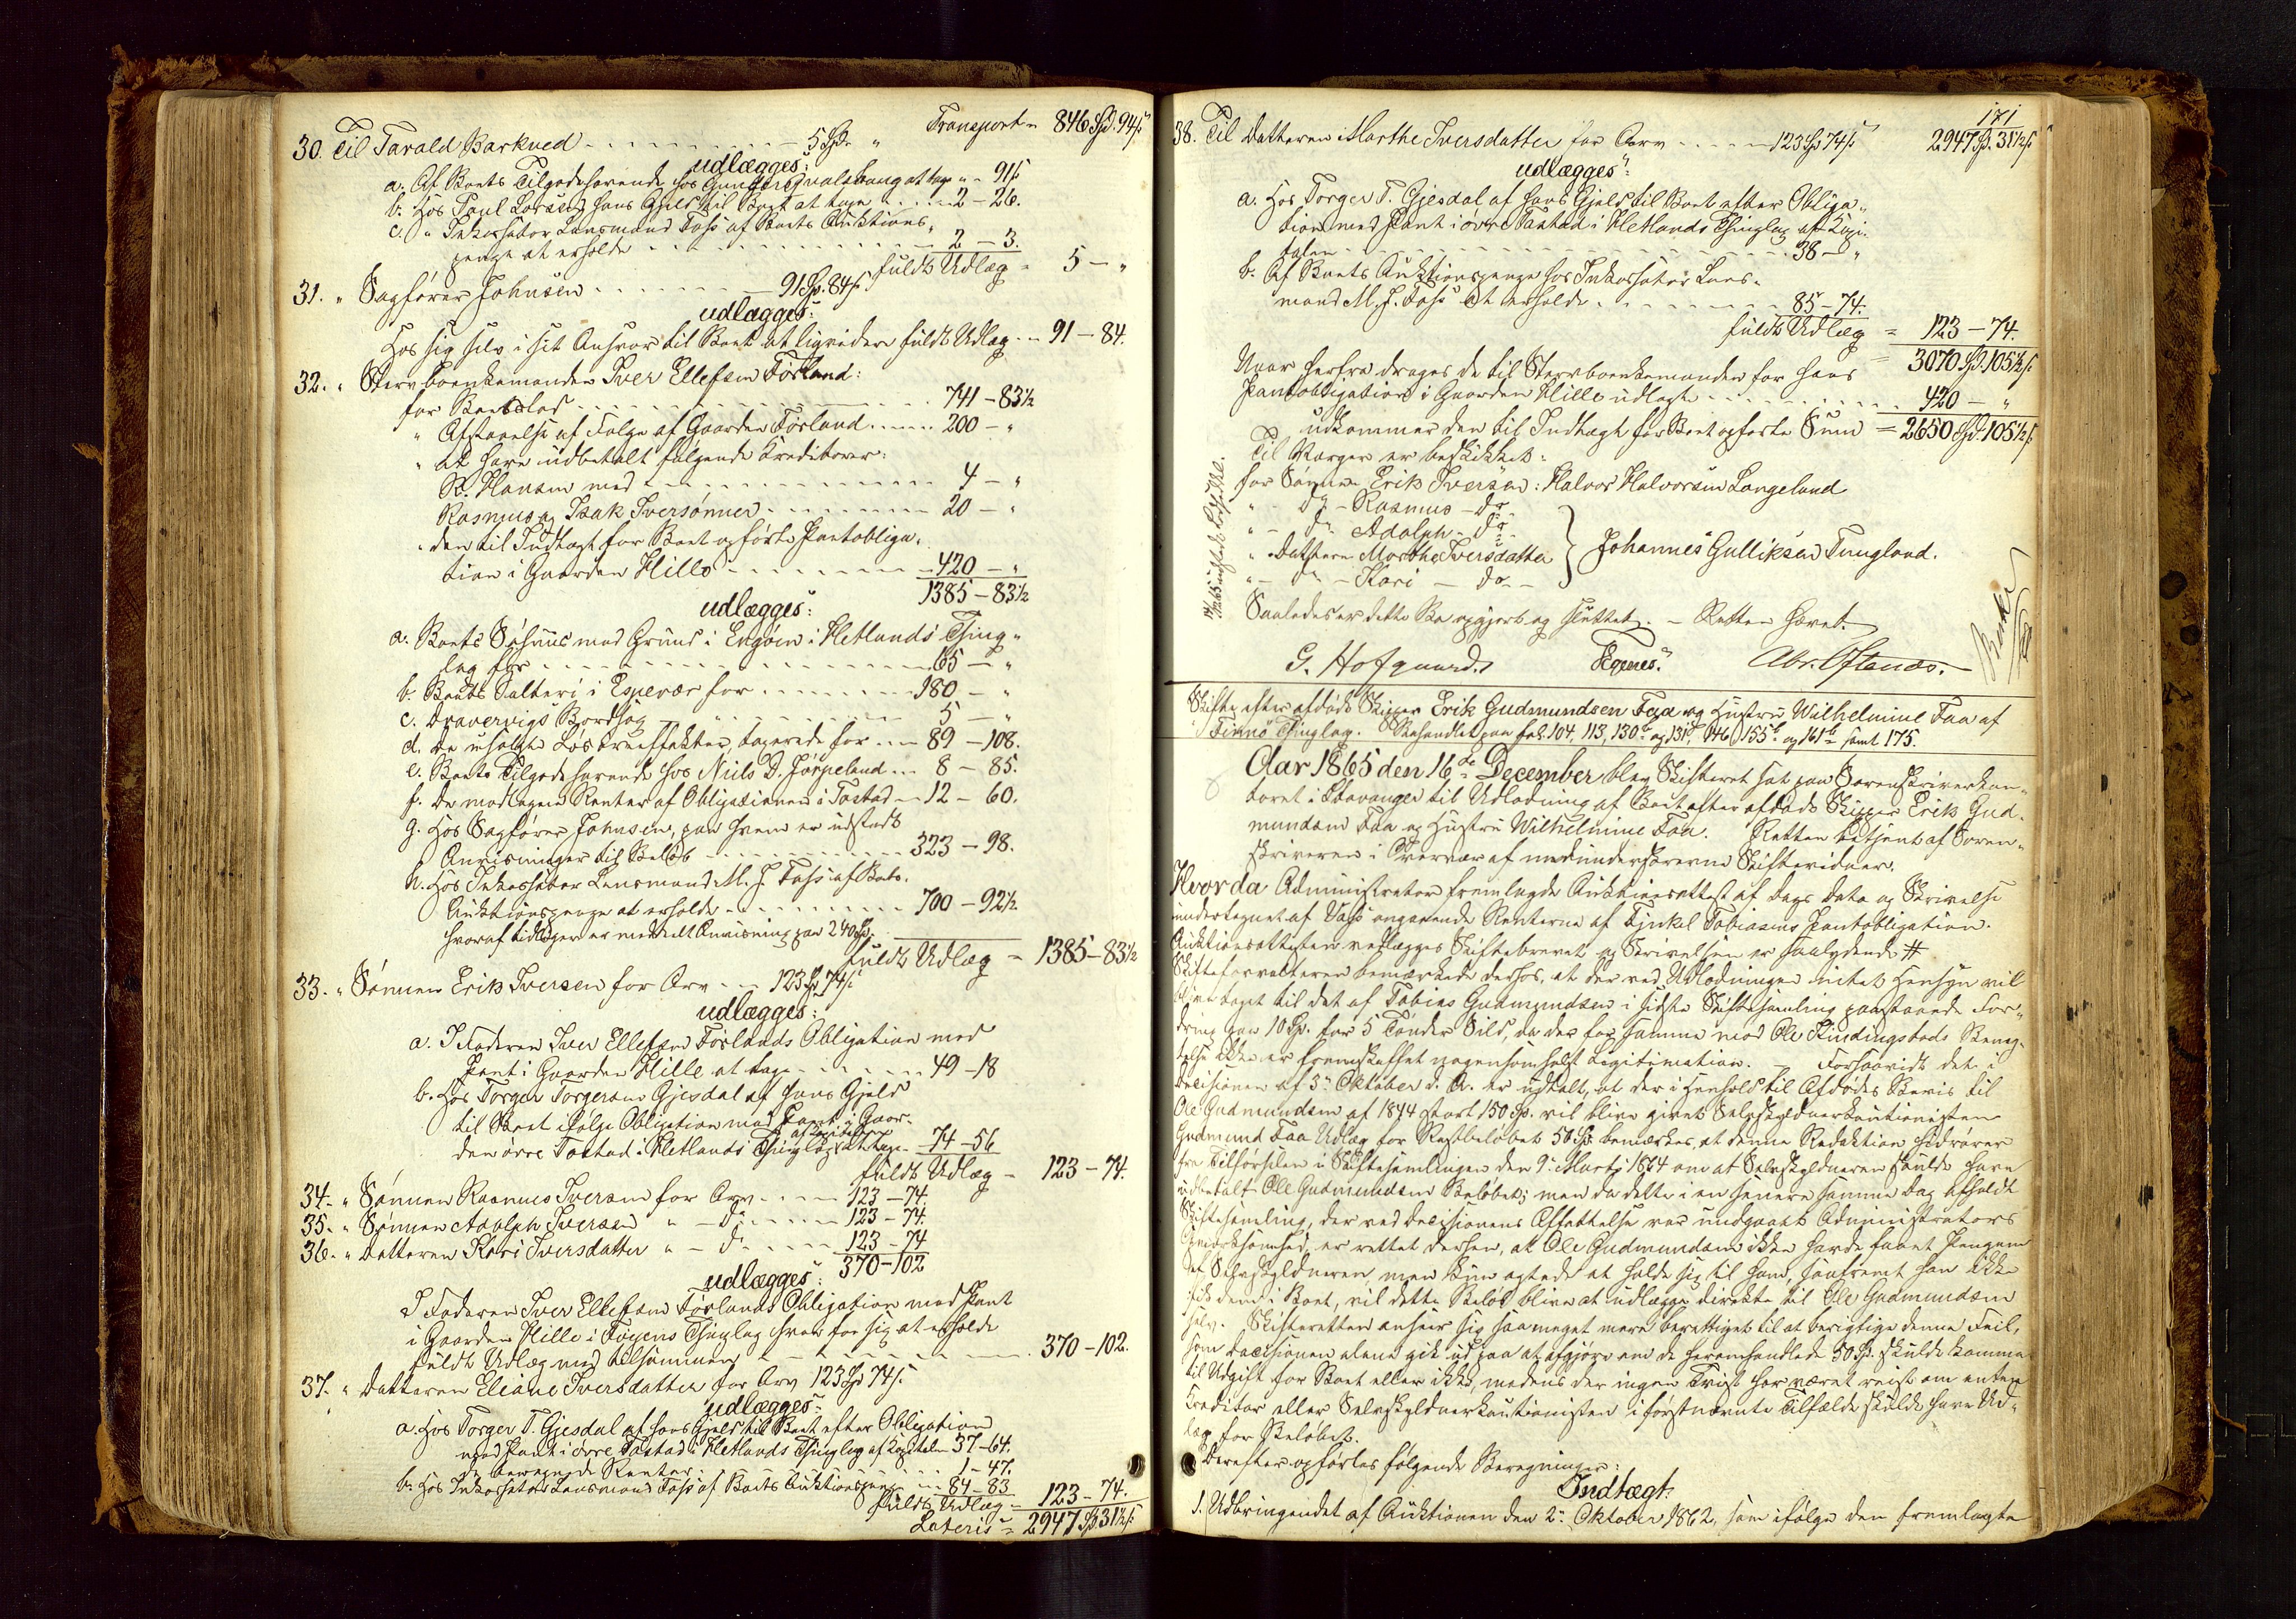 Transport = 846 Spd. 94 s
30. Til Tarald Barkved - - - 5 Spd. "
udlægges:
a. Af Boets Tilgodehavende hos Gunder Qvalevaag at tage " - 91 s
b. Hos Poul Larsens hans Gjeld til Boet at tage - - - 2 - 26.
c. " Inkassator Lensmand Foss af Boets Auktions-
penge at erholde - - - 2 - 3.
fuldt Udlæg = 5 - "
31. " Sagfører Johnsen - - - 91 Sp. 84 s.
udlægges:
Hos sig selv i sit Ansvar til Boet at ligvidere fuldt Udlæg - - 91 - 84.
32. " Stervboenkemanden Iver Ellefsen Førland:
for Boeslod - - - 741 - 83 1/2
" Afstaaelse af Følge af Gaarden Førland - - - 200 - "
" at have udbetalt følgende Kreditorer:
R. Hansen med - - - 4 - "
Rasmus og Isak Iversønner - - - 20 - "
" den til Indtægt for Boet opførte Pantobliga-
tion i Gaarden Hille - - - 420 - "
1385 - 83 1/2
udlægges:
a. Boets Søhuus med Grund i Engøen i Hetlands Thing-
lag for - - - 65 - "
b. Boets Salteri i Espevær for - - - 180 - "
c. Dravervigs Bordsag - - - 5 - "
d. De usolgte Løsøreeffekter, taxerede for - - - 89 - 108.
e. Boets Tilgodehavende hos Niels D. Jørpeland - - 8 - 85.
f. De modtagne Renter af Obligationen i Tastad - - 12 - 60.
g. Hos Sagfører Johnsen, paa hvem er udstedt
Anvisninger til Beløb - - - 323 - 98.
h. Hos Inkassator Lensmand M. J. Foss af Boets
Auktionspenge at erholde - - - 700 - 92 1/2
hvoraf tidligere er meddelt Anvisning paa 240 Sp.
fuldt Udlæg = 1385 - 83 1/2
33. " Sønnen Erik Iversen for Arv - - 123 Sp. 74 s.
udlægges:
a. I Faderen Iver Ellefsen Førlands Obligation med
Pant i Gaarden Hille at tage - - - 49 - 18
b. Hos Torger Torgersens Gjesdal af hans Gjeld
til Boet ifølge Obligation med Pant i Gaar-
den øvre Tastad i Hetlands Thinglag af Capitalen at tage - 74 - 56
fuldt Udlæg = 123 - 74.
34. " Sønnen Rasmus Iversen for Arv - - - 123 - 74.
35. " Sønnen Adolph Iversen " - do - - - 123 - 74.
36. " Datteren Kari Iversdatter " - do - - - 123 - 74
370 - 102
udlægges:
I Faderen Iver Ellefsen Førlands Obligation med Pant
i Gaarden Hille i Føyens Thinglag hver for sig at erholde
fuldt Udlæg med tilsammen - - - 370 - 102.
37. " Datteren Eliane Iversdatter for Arv 123 Sp 74 s.
udlægges:
a. Hos Torger T. Gjesdal af hans Gjeld til Boet efter Obligation
med Pant i øvre Tastad i Hetlands Thinglag af Capitalen 37 - 64.
de beregnede Renter - - - 1 - 47.
b. Hos Inkassator Lensmand Foss af Boets Auktionspenge - - 84 - 83
fuldt Udlæg = 123 - 74.
Lateris = 2947 Sp 31 1/2 s
171
38. Til Datteren Marthe Iversdatter for Arv - - - 123 Sp 74 s 2947 Sp. 31 1/2 s
udlægges:
a. Hos Torger T. Gjesdal af hans Gjeld til Boet efter Obliga-
tion med Pant i øvre Tastad i Hetlands Thinglag af Kapi-
talen - - - 38 - "
b. Af Boets Auktionspenge hos Inkassator Lens-
mand M. J. Foss at erholde - - - 85 - 74.
fuldt Udlæg = 123 - 74.
= 3070 Sp. 105 1/2 s
Naar herfra drages de til Stervboenkemanden for hans
Pantobligation i Gaarden Hille udlagte - - - 420 - "
udkommer den til Indtægt for Boet opførte Sum = 2650 Spd. 105 1/2 s
Til Værger er beskikket:
for Sønnen Erik Iversen: Halvor Halvorsen Langeland
" - do - Rasmus - do -
" - do - Adolph - do -
" - Datteren Marthe Iversdatter } Johannes Gulliksen Tungland.
" - do - Kari - do -
Saaledes er dette Bo opgjort og sluttet. - Retten hævet.
G. Hofgaard. Egenes. Abr. Oftenæs.
Skifte efter afdøde Skipper Erik Gudmundsen Faa og Hustru Wilhelmine Faa af
Finnø Thinglag. Behandlet paa fol. 104, 113, 130b og 131b, 146, 155b og 161b samt 175.
Aar 1865 den 16de December blev Skifteret sat paa Sorenskriverkon-
toret i Stavanger til Udlodning af Boet efter afdøde Skipper Erik Gud-
mundsen Faa og Hustru Wilhelmine Faa. Retten betjent af Soren-
skriveren i Overvær af medunderskrevne Skiftevidner.
Hvorda Administrator fremlagde Auktionsattest af Dags Dato og Skrivelse
undertegnet af Vass angaaende Renterne af Tjukel Tobiasens Pantobligation.
Auktionsattesten vedlægges Skiftebrevet og Skrivelsen er saalydende #
Skifteforvalteren bemærkede derhos, at der ved Udlodningen intet Hensyn vil
blive taget til det af Tobias Gudmundsen i sidste Skiftesamling paastaaede For-
dring paa 10 Sp. for 5 Tønder Sild, da der for samme med Ole Kindingstads Benæg-
telse ikke er fremskaffet nogensomhelst Legitimation. - Forsaavidt det i
Decisionen af 3de Oktober d. A. er udtalt, at der i Henhold til Afdødes Bevis til
Ole Gudmundsen af 1844 stort 150 Sp. vil blive givet Selvskyldnerkautionisten
Gudmund Faa Udlæg for Restbeløbet 50 Sp. bemærkes, at denne Redaktion hidrører
fra Tilførselen i Skiftesamlingen den 9de Marts 1864 om at Selvskyldneren skulde have
udbetalt Ole Gudmundsen Beløbet; men da dette i en senere samme Dag afholdt
Skiftesamling, der ved Decisionens Affattelse var undgaaet Administrators
Opmærksomhed, er rettet derhen, at Ole Gudmundsen ikke havde faaet Pengene
af Selvskyldneren, men kun agtede at holde sig til ham, saafremt han ikke
fik dem i Boet, vil dette Beløb blive at udlægge direkte til Ole Gudmundsen
selv. Skifteretten anseer sig saameget mere berettiget til at berigtige denne Feil,
som Decisionen alene gik ud paa at afgjøre om de heromhandlede 50 Sp. skulde komme
til Udgift for Boet eller ikke, medens der ingen Tvist har været reist om enten
Creditor eller Selvskyldnerkautionisten i førstnævnte Tilfælde skulde have Ud-
læg for Beløbet.
Derefter opførtes følgende Beregninger:
Indtægt:
1. Udbringendet af Auktionen den 2den Oktober 1862, som ifølge den fremlagte